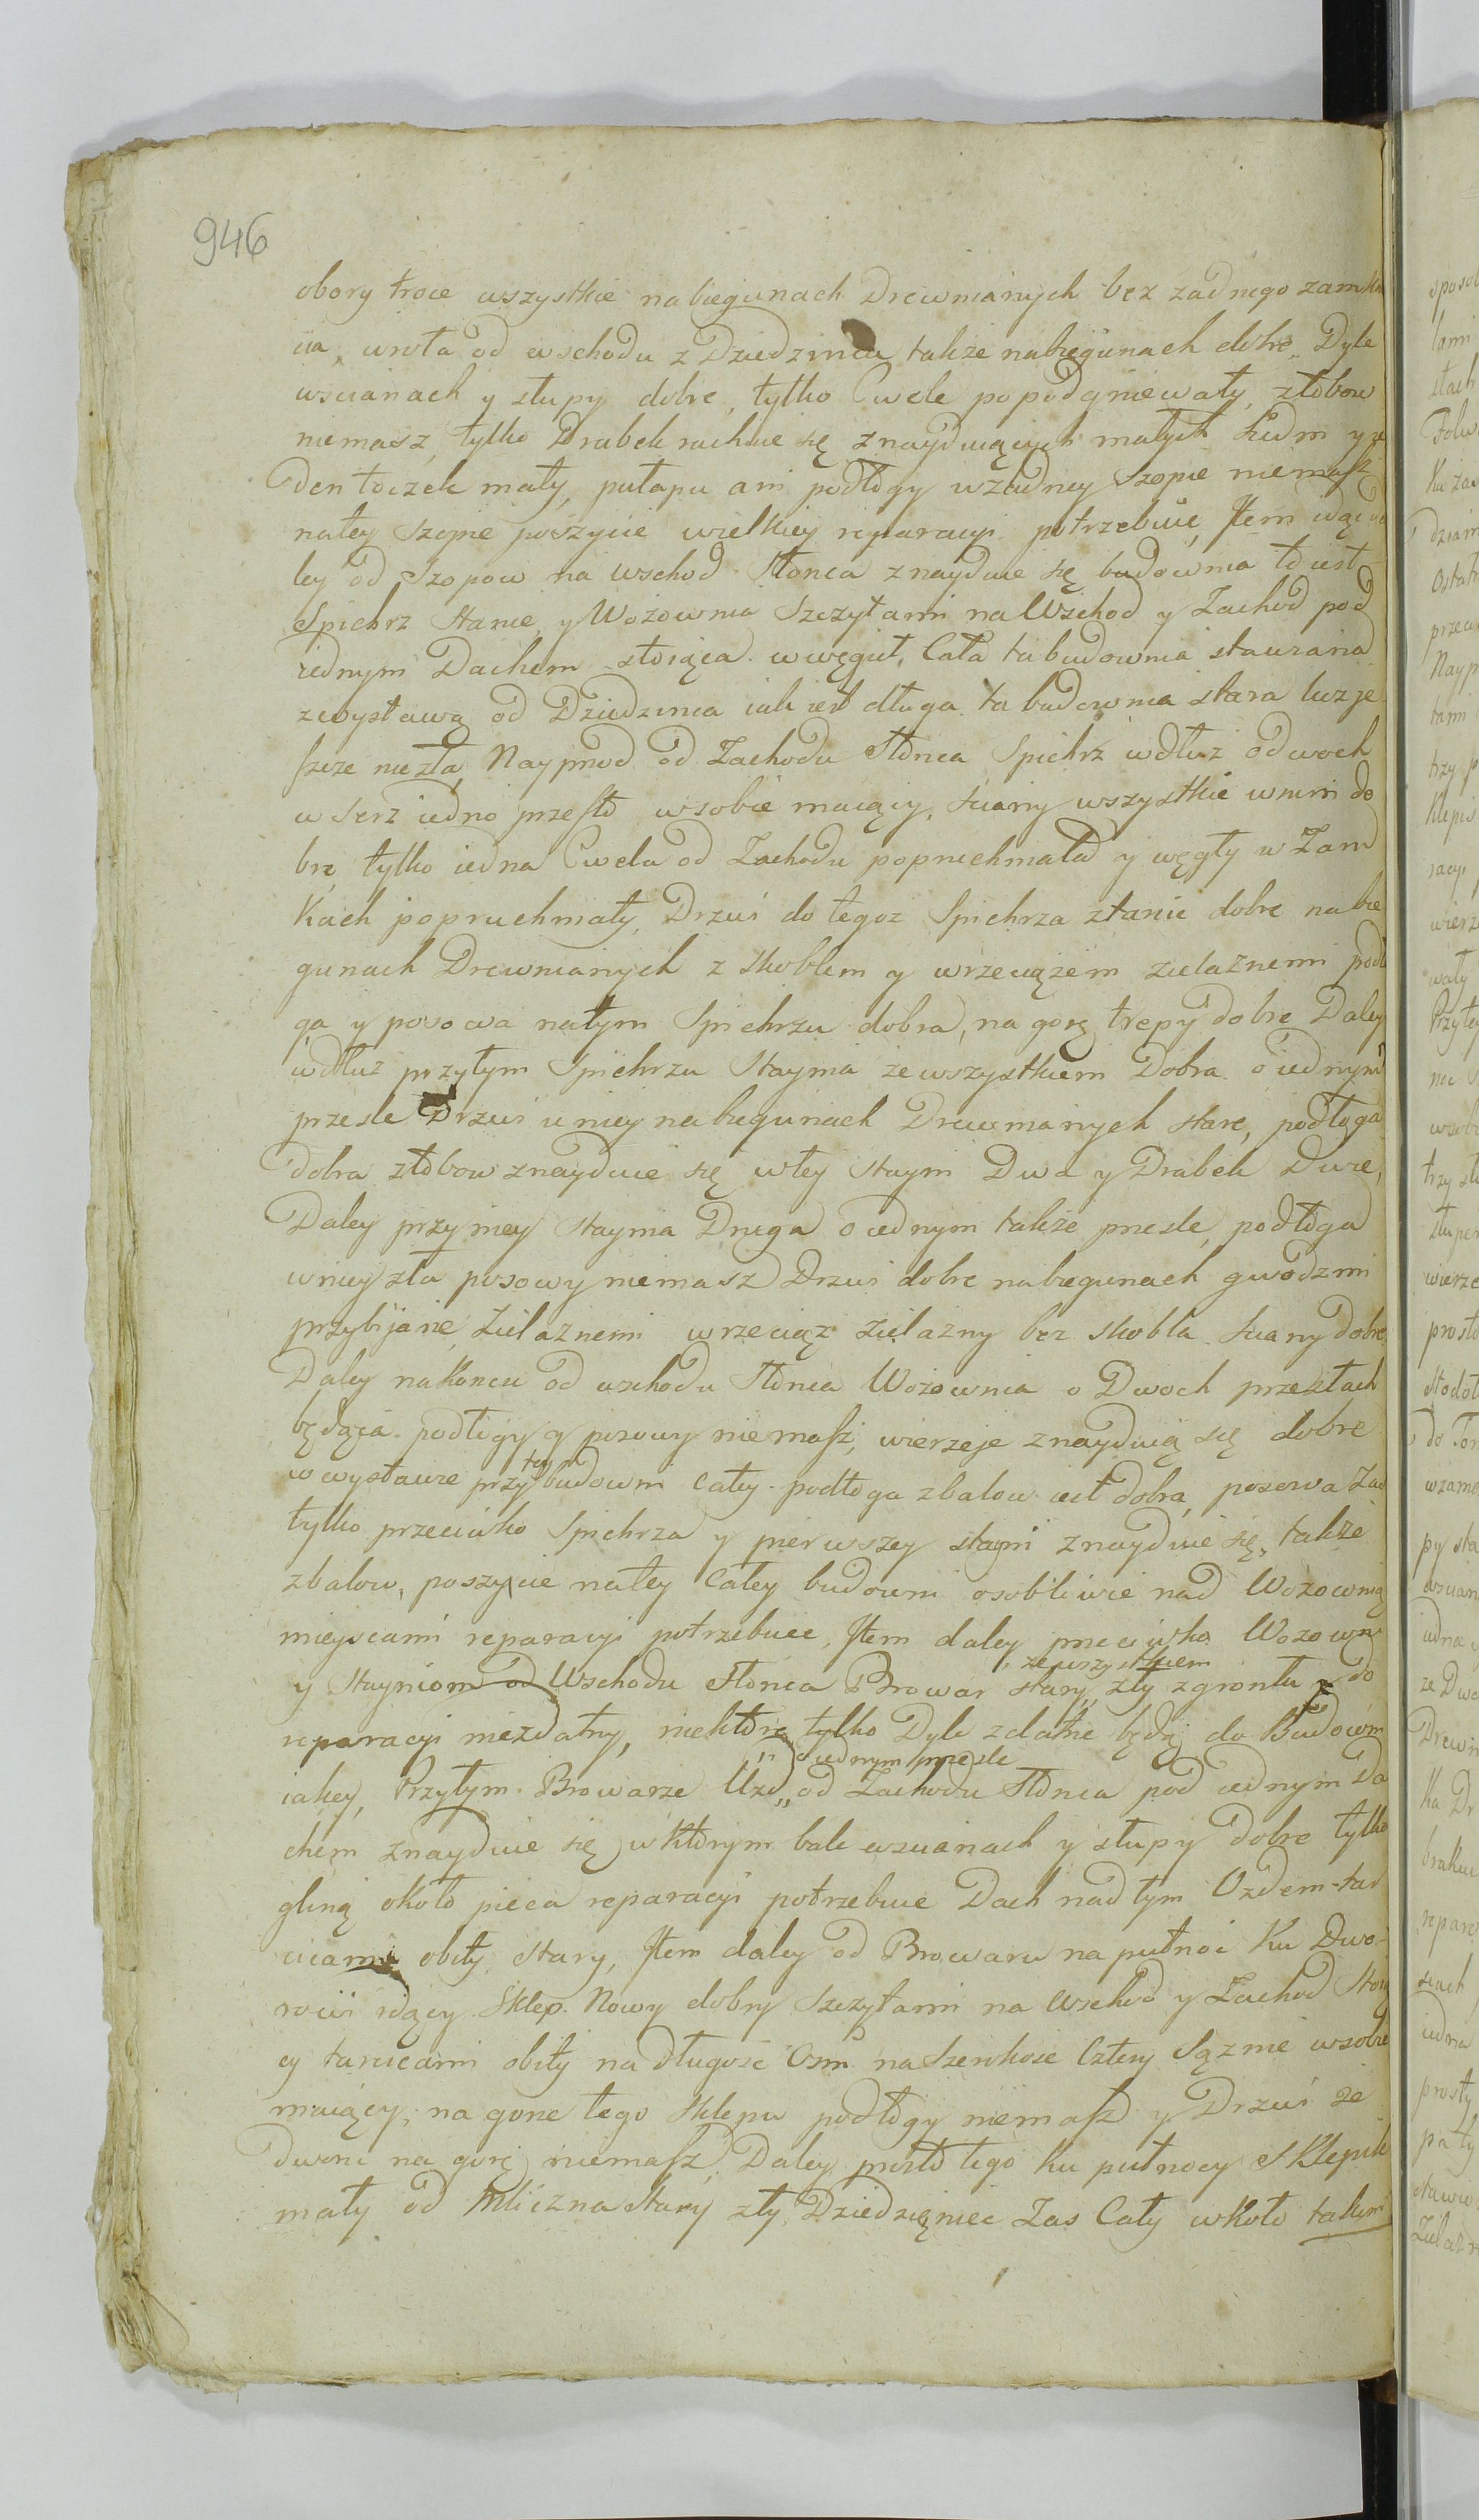 946
obory troie wszystkie na biegunach Drewnianych bez zadnego zamknie
cia, wrota od wschodu z Dziedzinca takze na biegunach dobre, Dyle
wscianach y słupy dobre, tylko Cwele popodgniewały, złobow
niemasz, tylko Drabek rachuie się znayduiących małych siedm y je
den łoczek mały, pułapu ani podłogy wzadney Szopie niemasz
natey Szopie poszycie wielkiey reparacyi potrzebuie, Jtem idąc da
ley od Szopow na wschod Słonca znayduie się budownia to iest
Spichrz Stanie y Wozownia Szczytami na Wschod y Zachod pod
iednym Dachem stoiąca w węgieł, Cała ta budownia stawiana
zwystawą od Dziedzinca iak iest długa ta budownia stara lecz je
szcze niezła, Nayprzod od Zachodu Słonca Spichrz wdłuz o dwoch
w Serz iedno przesło wsobie maiący, sciany wszystkie wnim do
bre, tylko iedna Cwela od Zachodu popruchniała y węgły w Zam
kach popruchniały, Drzwi do tegoz Spichrza ztanie dobre na bie
gunach Drewnianych z skoblem y wrzeciązem zielaznemi podło
ga y posowa natym Spichrzu dobra, na gorę trepy dobre Daley
wdłuz przytym Spichrzu Staynia ze wszystkiem Dobra o iednym
przesle Drzwi u niey na biegunach Drewnianych stare, podłoga
dobra złobow znayduie się wtey stayni Dwa y Drabek dwie,
Daley przyniey Staynia Druga o iednym takze przesle, podłoga
wniey zła posowy niemasz Drzwi dobre na biegunach gwodzmi
przybijane zielaznemi wrzeciąz zielazny bez skobla Sciany dobre
Daley nakoncu od wschodu Słonca Wozownia o Dwoch przesłach
będąca podłogy y posowy niemasz, wierzeje znayduią się dobre
wwystawie przy tey budowni całey podłoga zbalow iest dobra, posowa Zas
tylko przeciwko Spichrza y pierwszey stayni znayduie się, takze
zbalow, poszycie natey Całey budowni osobliwie nad Wozownią
miejscami reparacyi potrzebuie, Jtem daley przeciwko Wozowni
y Stayniom od Wschodu Słonca Browar stary, ze wszystkiem zły zgrontu y do
reparacyi niezdatny, niektore tylko Dyle zdatne będą do Budowni
iakiey, Przytym Browarze Uzd, o iednym przesle od Zachodu Słonca pod iednym Da
chem znayduie się w ktorym bale wscianach y słupy dobre tylko
gliną około pieca reparacyi potrzebuie Dach nad tym Ozdem tar
cicami obity stary, Jtem daley od Browaru na pułnoc Ku Dwo
rowi idący Sklep Nowy dobry Szczytami na Wschod y Zachod stoią
cy tarcicami obity na długosc Osm na Szerokosc Cztery Sąznie wsobie
maiący, na gorze tego Sklepu podłogy niemasz y Drzwi ze
dworu na gorę niemasz, Daley prosto tego ku pułnocy Sklepik
mały od mliczna stary zły, Dziedziniec Zas Cały wkoło takim